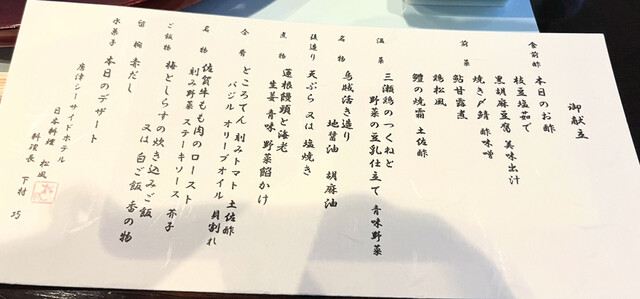 御献立
食前酢 本日のお酢
前菜 枝豆塩茹で
黒胡麻豆腐 美味出汁
焼き〆鯖 酢味噌
鮎甘露煮
鶏松風
鱧の焼霜 土佐酢
温菜 三瀬鶏のつくねと
野菜の豆乳仕立て 青味野菜
名物 烏賊活き造り
地醤油 胡麻油
後造り 天ぷら 又は 塩焼き
煮物 蓮根饅頭と海老
生姜 青味 野菜餡かけ
合肴 ところてん 刻みトマト 土佐酢
バジル オリーブオイル 貝割れ
名物 佐賀牛もも肉のロースト
刻み野菜 ステーキソース 芥子
ご飯物 梅としらすの炊き込みご飯
又は 白ご飯 香の物
留椀 赤だし
水菓子 本日のデザート
唐津シーサイドホテル
日本料理 松風
料理長 下村 巧